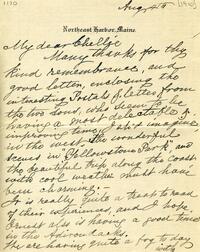 1170
Aug 4th
1910
Northeast Harbor, Maine.
My dear
Many thanks for the
kind remembrance, and
good letter, enclosing the
interesting Postal & letter from
the two sons, who seem to be
having a most delectable &
improving time,
in the west. The wonderful
scenes in Yellowstone Park and
the beautiful trip along the coast
with cool weather must have
been charming.
It is really quite a treat to read
of their experiences, and I hope
Ernest also is having a good time
in the Adirondacks.
We are having quite a fog to day